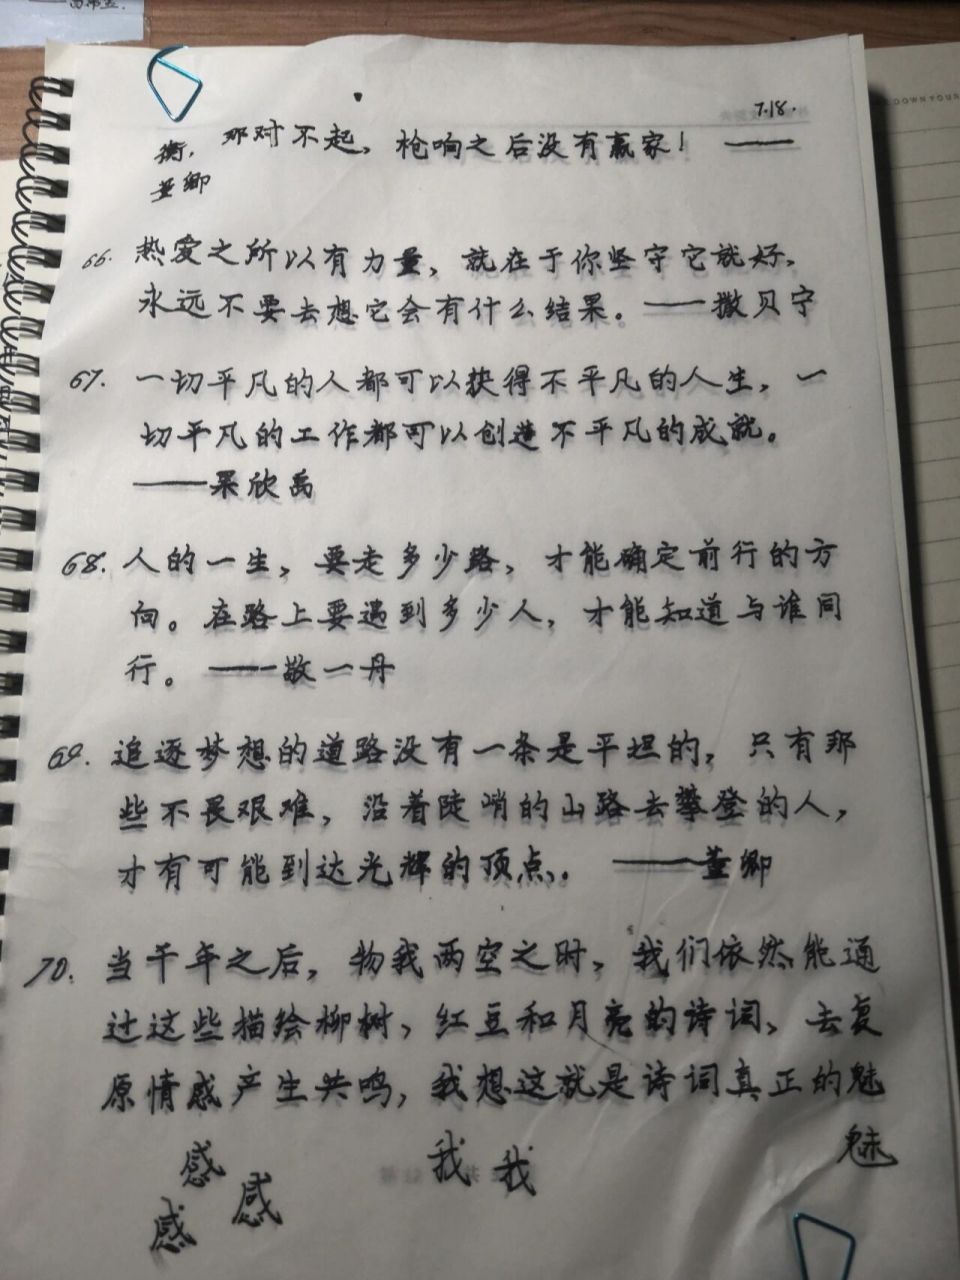 7.18.
衡，那对不起，枪响之后没有赢家！ ——
董卿
66. 热爱之所以有力量，就在于你坚守它就好，
永远不要去想它会有什么结果。——撒贝宁
67. 一切平凡的人都可以获得不平凡的人生，一
切平凡的工作都可以创造不平凡的成就。
——梁欣禹
68. 人的一生，要走多少路，才能确定前行的方
向。在路上要遇到多少人，才能知道与谁同
行。——敬一丹
69. 追逐梦想的道路没有一条是平坦的，只有那
些不畏艰难，沿着陡峭的山路去攀登的人，
才有可能到达光辉的顶点。 ——董卿
70. 当千年之后，物我两空之时，我们依然能通
过这些描绘柳树，红豆和月亮的诗词，去复
原情感产生共鸣，我想这就是诗词真正的魅
感 我 我 魅
感 感